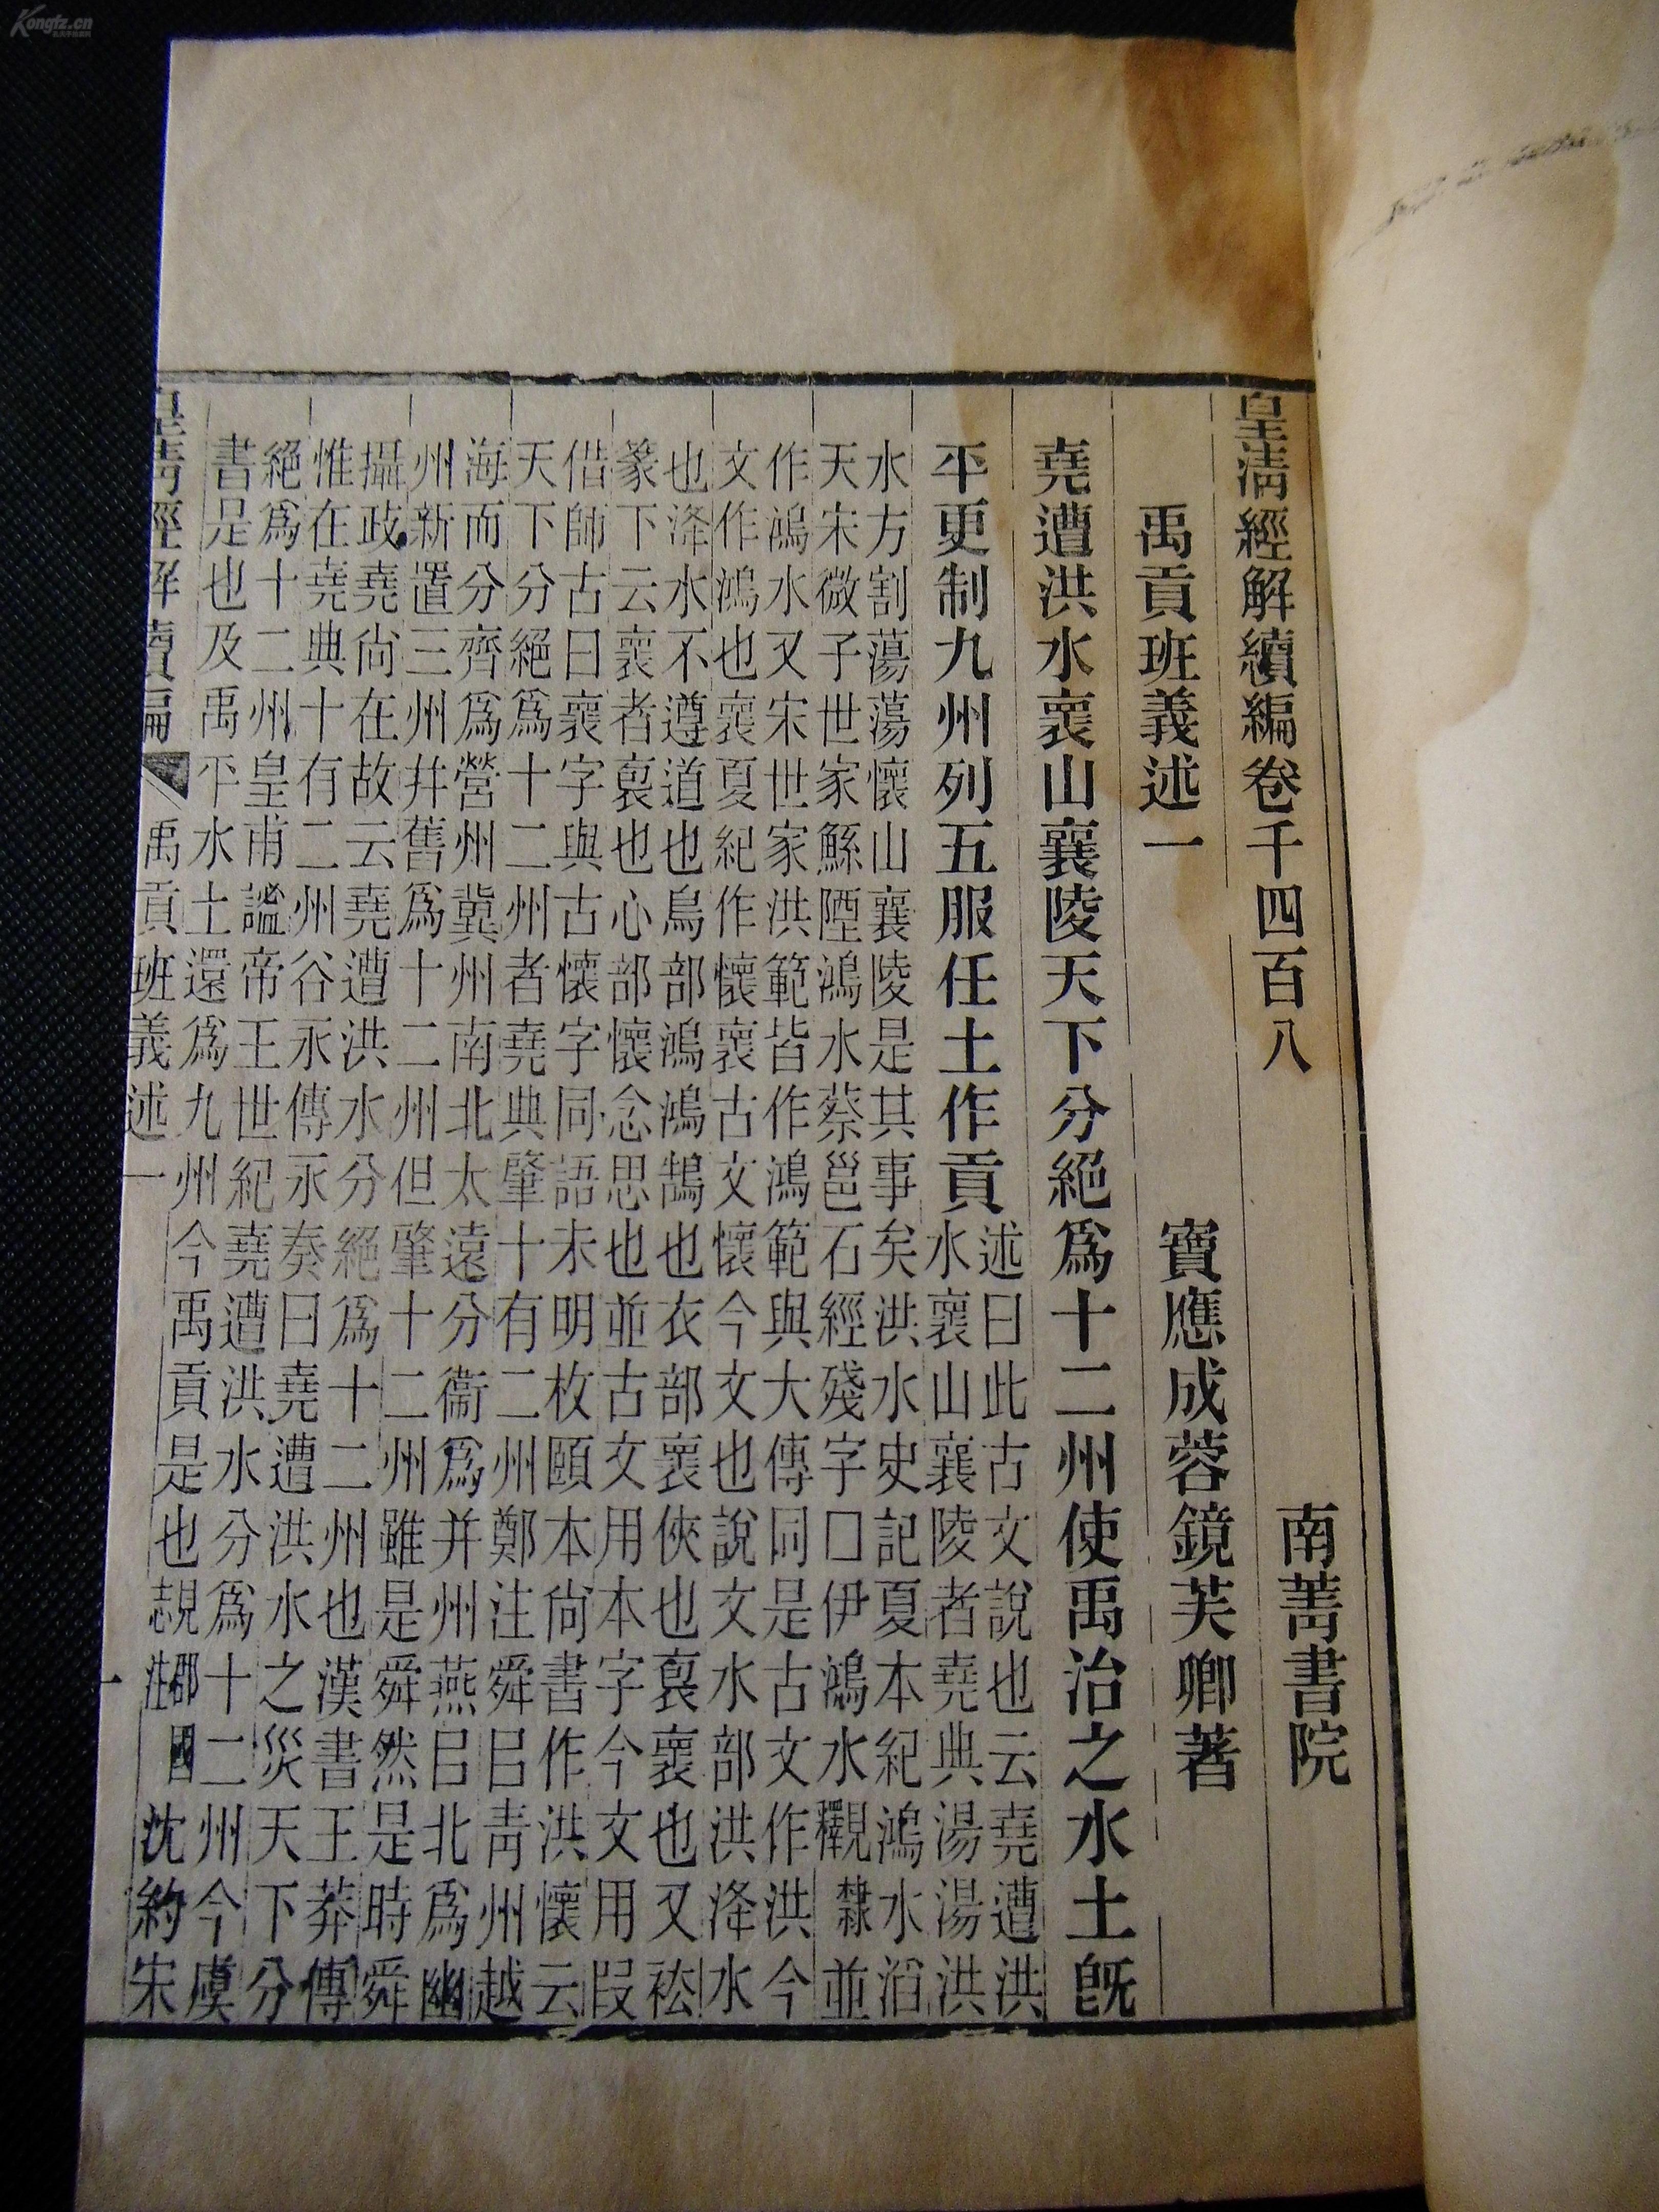 皇淸經解續編卷千四百八　南菁書院
禹貢班義述一　寶應成蓉鏡芙卿著
堯遭洪水褱山襄陵天下分絕爲十二州使禹治之水土旣
平更制九州列五服任土作貢
述曰此古文說也云堯遭洪
水褱山襄陵者堯典湯湯洪
水方割蕩蕩懷山襄陵是其事矣洪水史記夏本紀鴻水滔
天宋微子世家鯀陻鴻水蔡邕石經殘字口伊鴻水觀隸並
作鴻水又宋世家洪範皆作鴻範與大傳同是古文作洪今
文作鴻也褱夏紀作懷褱古文懷今文也說文水部洪洚水
也洚水不遵道也鳥部鴻鴻鵠也衣部褱俠也褢褱也又袪
篆下云褱者褢也心部懷念思也並古文用本字今文用叚
借師古曰褱字與古懷字同語未明枚頤本尙書作洪懷云
天下分絕爲十二州者堯典肇十有二州鄭注舜㠯靑州越
海而分齊爲營州冀州南北太遠分衞爲并州燕㠯北爲幽
州新置三州幷舊爲十二州但肇十二州雖是舜然是時舜
攝政堯尙在故云堯遭洪水分絕爲十二州也漢書王莽傳
惟在堯典十有二州谷永傳永奏曰堯遭洪水之災天下分
絕爲十二州皇甫謐帝王世紀堯遭洪水分爲十二州今虞
書是也及禹平水土還爲九州今禹貢是也見郡國志注沈約宋
皇淸經解續編　禹貢班義述一　一
Kongfz.cn